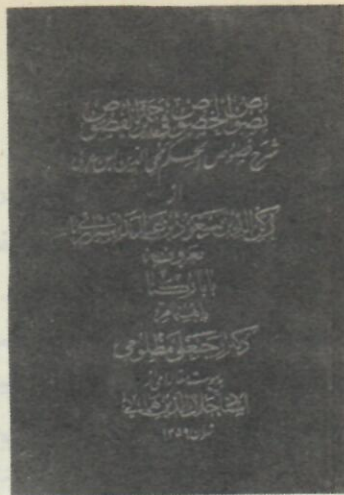 نصوص الخصوص فی ترجمة الفصوص
شرح فصوص الحکم محیی الدین ابن عربی
از
رکن الدین مسعود بن عبدالله شیرازی
معروف به
بابا رکنا
باهتمام
دکتر رجبعلی مظلومی
استاد جلال الدین همائی
تهران ۱۳۵۹